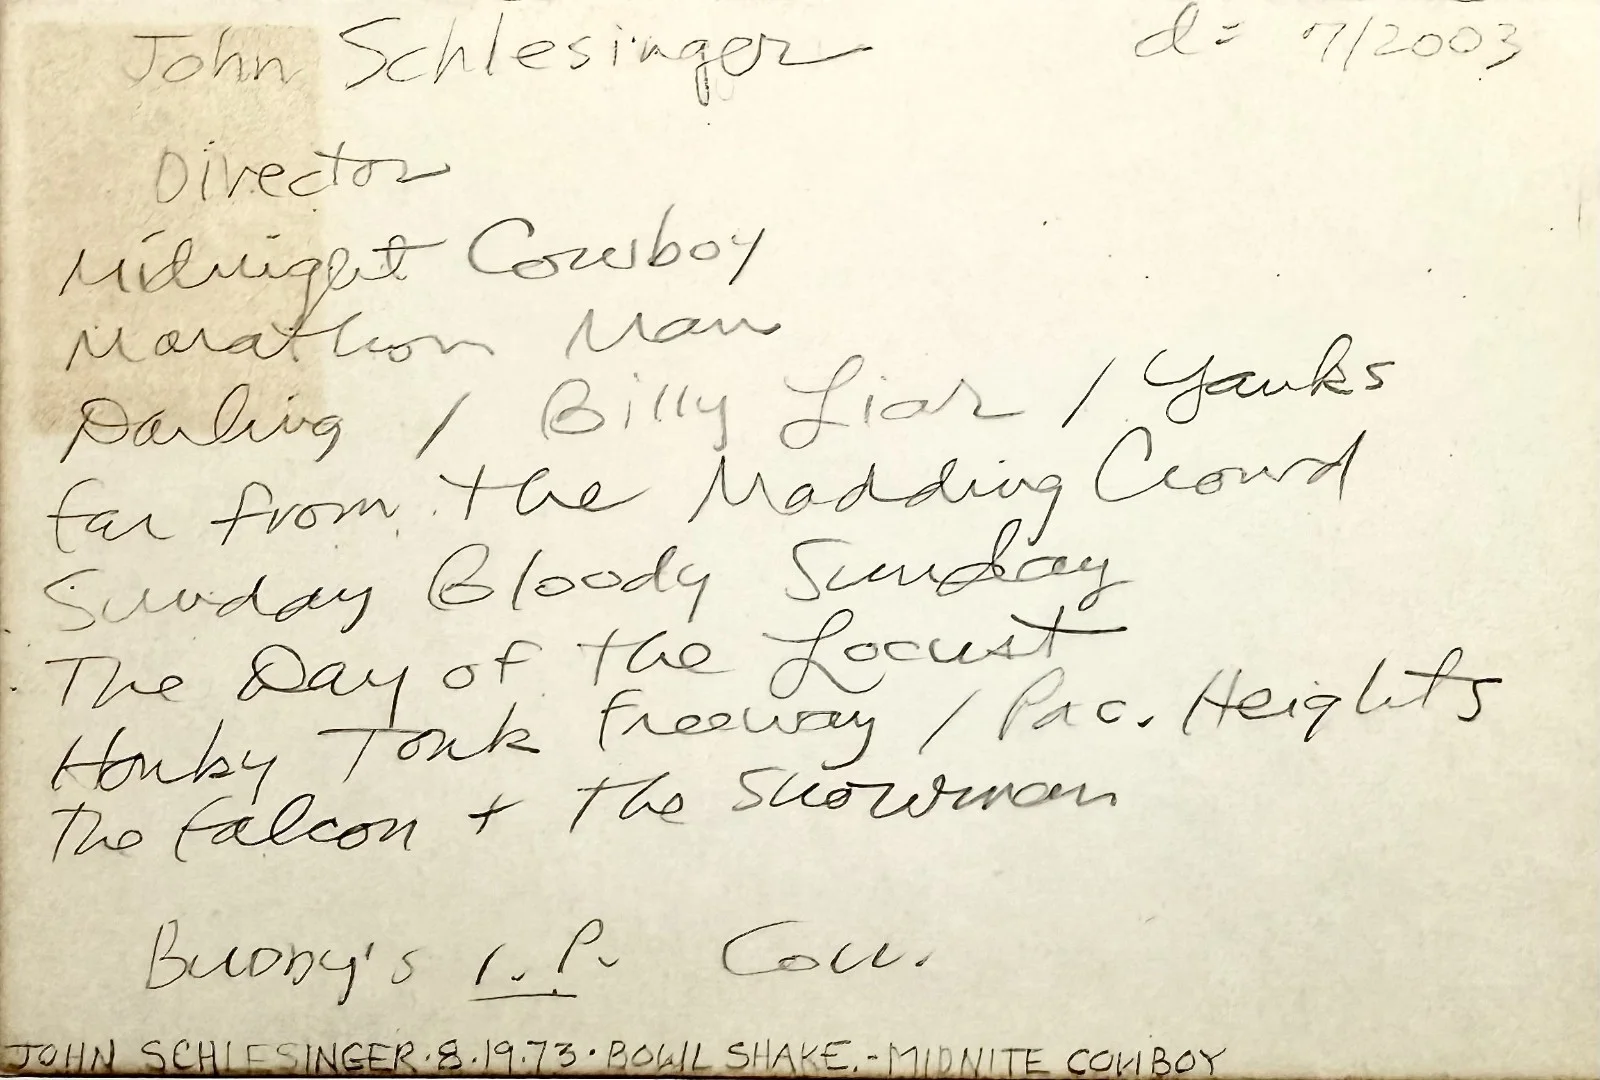 John Schlesinger d= 7/2003
Director
Midnight Cowboy
Marathon Man
Darling / Billy Liar / Yanks
Far from the Madding Crowd
Sunday Bloody Sunday
The Day of the Locust
Honky Tonk Freeway / Pac. Heights
The Falcon + the Snowman
I.P. Coll.
JOHN SCHLESINGER · 8.19.73 · BOWL SHAKE. - MIDNITE COWBOY